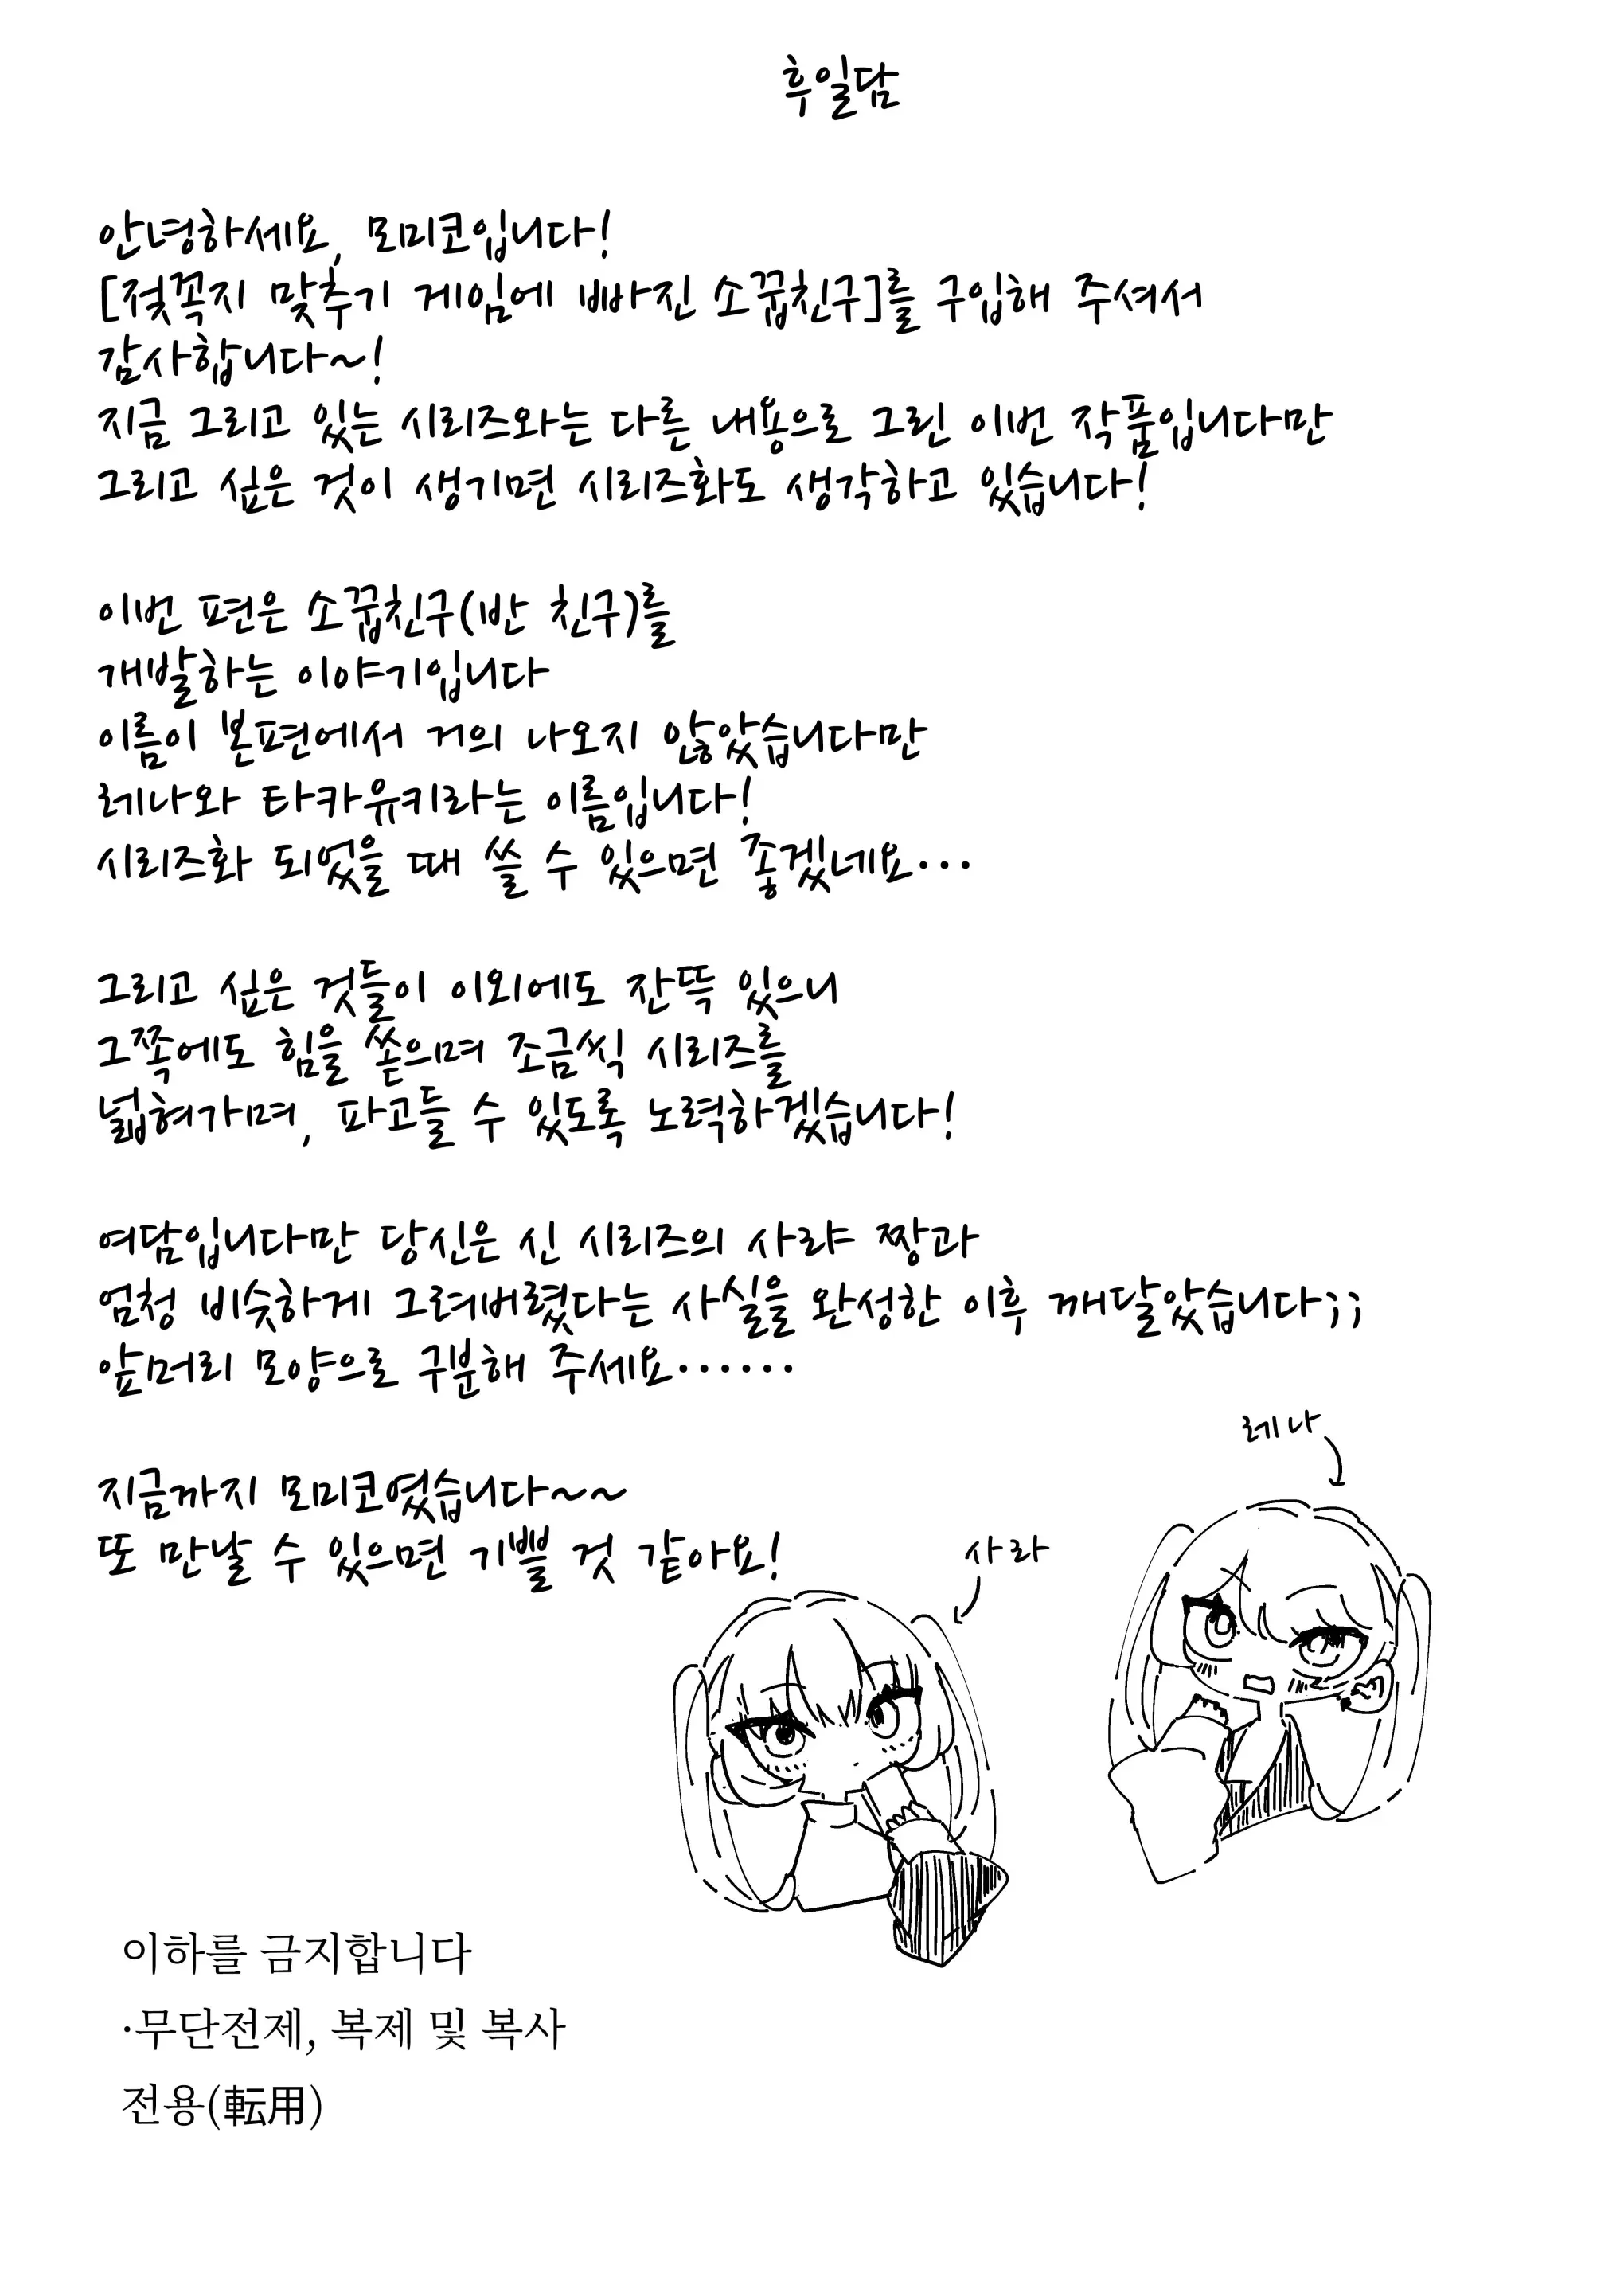 후일담
안녕하세요, 모미코입니다!
[젖꼭지 맞추기 게임에 빠진 소꿉친구]를 구입해 주셔서
감사합니다~!
지금 그리고 있는 시리즈와는 다른 내용으로 그린 이번 작품입니다만
그리고 싶은 것이 생기면 시리즈화도 생각하고 있습니다!
이번 편은 소꿉친구(반 친구)를
개발하는 이야기입니다
이름이 본편에서 거의 나오지 않았습니다만
레나와 타카유키라는 이름입니다!
시리즈화 되었을 때 쓸 수 있으면 좋겠네요...
그리고 싶은 것들이 이외에도 잔뜩 있으니
그쪽에도 힘을 쏟으며 조금씩 시리즈를
넓혀가며, 파고들 수 있도록 노력하겠습니다!
여담입니다만 당신은 신 시리즈의 사랴 짱과
엄청 비슷하게 그려버렸다는 사실을 완성한 이후 깨달았습니다;;
앞머리 모양으로 구분해 주세요......
레나
지금까지 모미코였습니다~~
또 만날 수 있으면 기쁠 것 같아요!
사라
이하를 금지합니다
·무단전제, 복제 및 복사
전용(転用)